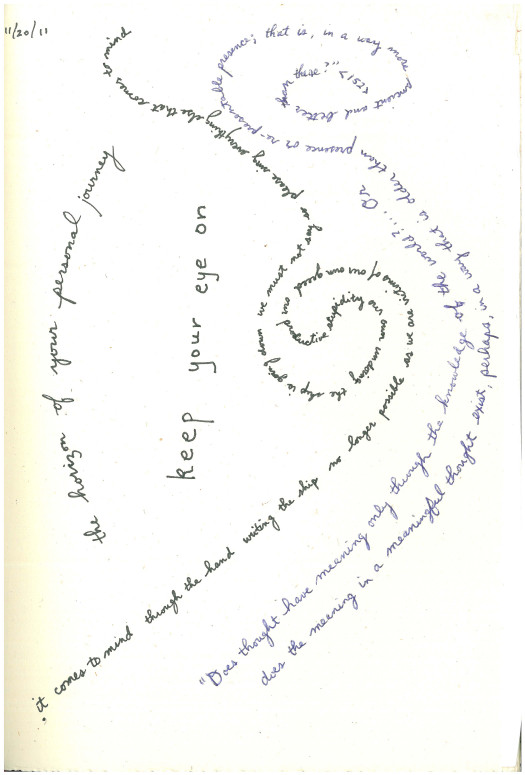 11/20/11
keep your eye on
the horizon of your personal journey
. it comes to mind through the hand writing the ship no longer possible as we are victims of our own good productive stupidity our own undoing the ship is going down we must not say so please say everything else that comes to mind
"Does thought have meaning only through the knowledge of the world?... Or
does the meaning in a meaningful thought exist, perhaps, in a way that is older than presence or re-presentable presence; that is, in a way more ancient and better than